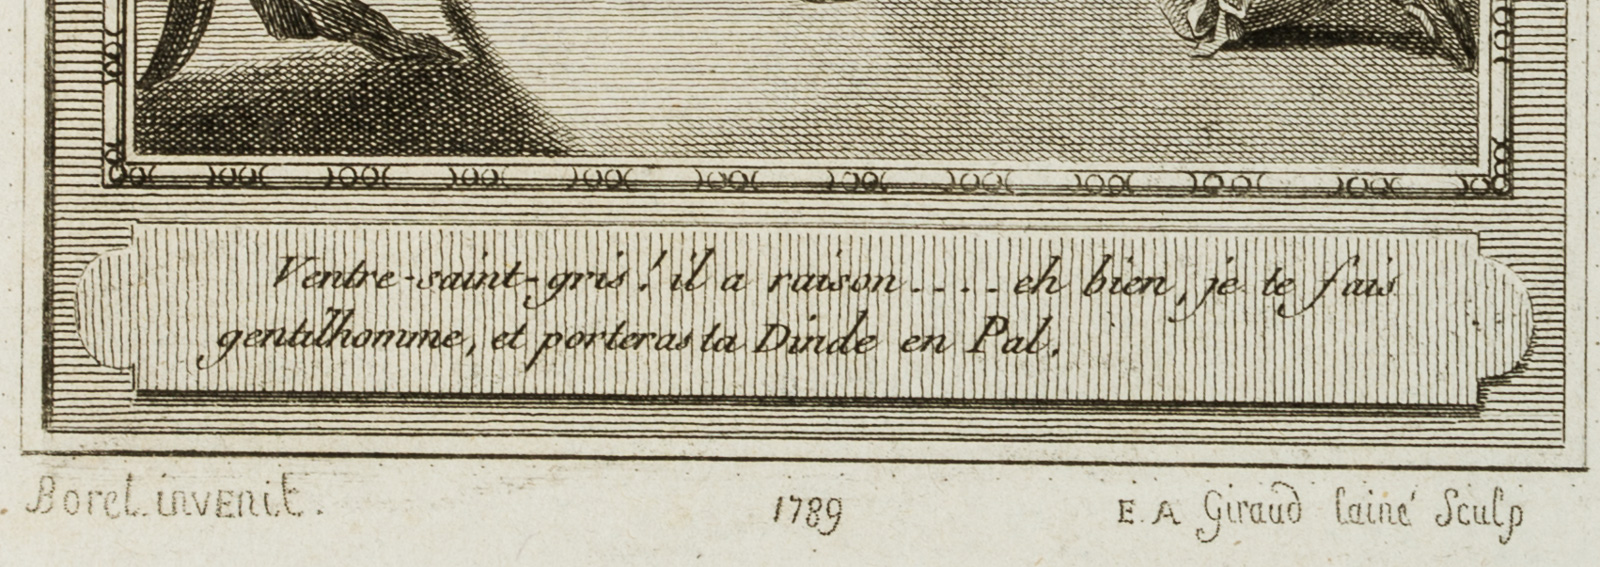 Ventre-saint-gris! il a raison.... eh bien, je te fais
gentilhomme, et porteras ta Dinde en Pal.
Borel invenit. 1789 E. A Giraud lainé Sculp